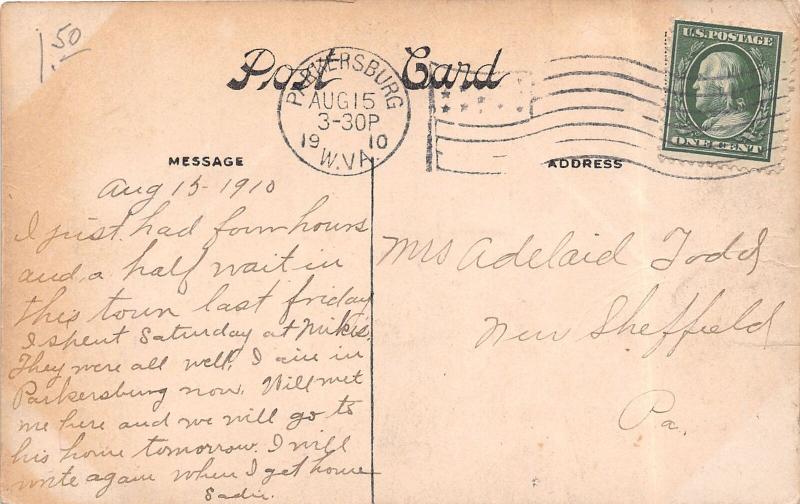 1.50
Post Card
PARKERSBURG
AUG 15
3-30P
19 10
W.VA.
U.S. POSTAGE
ONE CENT
MESSAGE
Aug 15-1910
I just had four hours
and a half wait in
this town last friday
I spent Saturday at Mikes.
They were all well, I am in
Parkersburg now. Will met
me here and we will go to
his home tomorrow. I will
write again when I get home
Sadie.
ADDRESS
Mrs Adelaid Todd
New Sheffield
Pa.